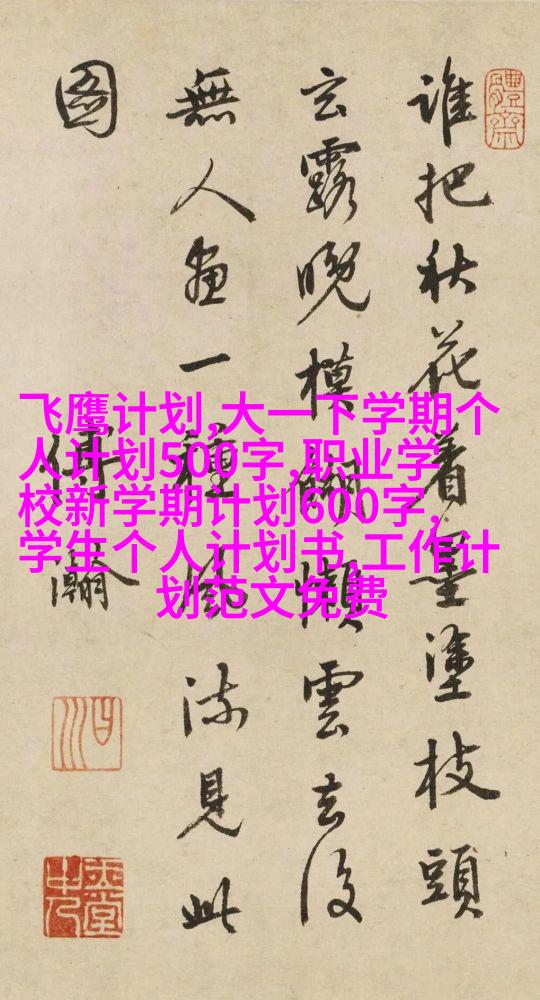 誰把秋花着墨塗枝頭
玄露晚模糊懶雲去後
無人畫一種風流見此
圖
傅瀚
體齋
飞鹰计划,大一下学期个
人计划500字,职业学
校新学期计划600字,
学生个人计划书,工作计
划范文免费